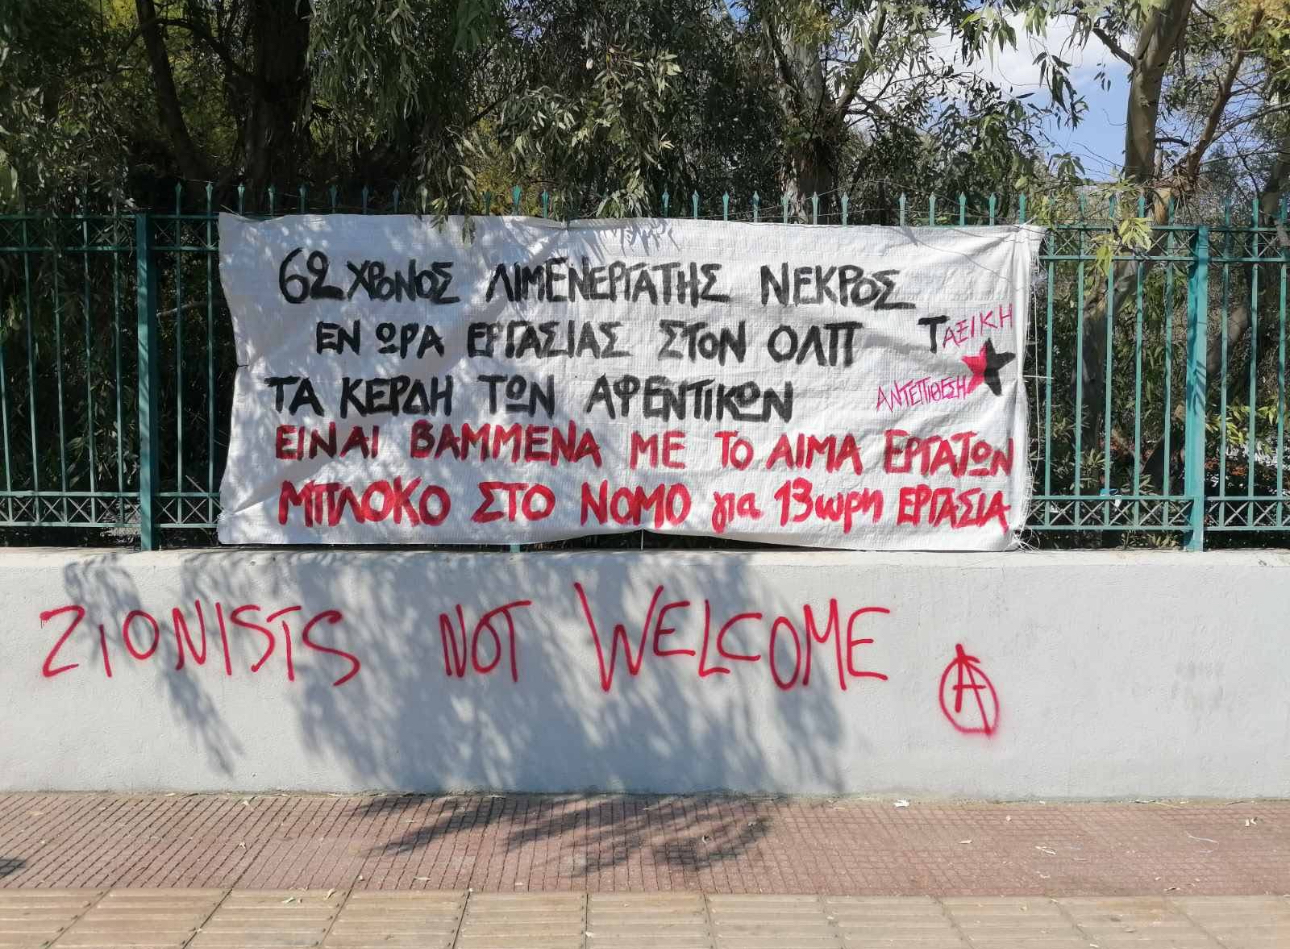 62 ΧΡΟΝΟΣ ΛΙΜΕΝΕΡΓΑΤΗΣ ΝΕΚΡΟΣ
ΕΝ ΩΡΑ ΕΡΓΑΣΙΑΣ ΣΤΟΝ ΟΛΠ
ΤΑ ΚΕΡΔΗ ΤΩΝ ΑΦΕΝΤΙΚΩΝ
ΕΙΝΑΙ ΒΑΜΜΕΝΑ ΜΕ ΤΟ ΑΙΜΑ ΕΡΓΑΤΩΝ
ΜΠΛΟΚΟ ΣΤΟ ΝΟΜΟ για 13ωρη ΕΡΓΑΣΙΑ
ΤΑΞΙΚΗ
ΑΝΤΕΠΙΘΕΣΗ
ZiONISTS NOT WELCOME A